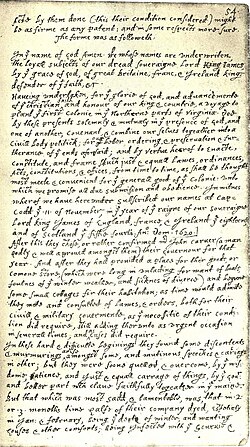 54
by them done (this their condition considered) might
be as firme as any patent; and in some respects more sure.
The forme was as followeth.
In yᵉ name of god Amen. We whose names are underwriten,
the loyall subjects of our dread soveraigne Lord King James
by yᵉ grace of god, of great Britaine, franc, & Ireland king,
defender of yᵉ faith, &c
Haveing undertaken, for yᵉ glorie of god, and advancemente
of yᵉ christian and honour of our king & countrie, a voyage to
plant yᵉ first colonie in yᵉ Northerne parts of Virginia, doe
by these presents solemnly & mutualy in yᵉ presence of god, and
one of another, covenant, & combine our selves togeather into a
civill body politick; for better ordering, & preservation & fur=
therance of yᵉ ends aforesaid; and by vertue hearof to enacte,
constitute, and frame such just & equall lawes, ordinances,
Acts, constitutions, & offices, from time to time, as shall be thought
most meete & convenient for yᵉ generall good of yᵉ colonie: unto
which we promise all due submission and obedience. In witnes
wherof we have hereunder subscribed our names at cap=
Codd yᵉ ·11· of November, in yᵉ year of yᵉ raigne of our soveraigne
Lord king James of England, france, & Ireland yᵉ eighteenth
and of Scotland yᵉ fiftie fourth. Ano: dom ·1620·
After this they chose, or rather confirmed mʳ John Carver (a man
godly & well approved amongst them) their Governour for that
year. And after they had provided a place for their goods, or
comone store, (which were long in unlading for want of boats,
foulnes of yᵉ winter weather, and sicknes of diverce) and begune
some small cottages for their habitation; as time would admitte
they mette and consulted of lawes, & orders, both for their
civill, & military governmente, as yᵉ necessitie of their condi=
tion did require, still adding therunto as urgent occasion
in severall times, and as cases did require.
In these hard & difficulte beginings they found some discontents
& murmurings amongst some, and mutinous speeches & carriags
in other; but they were soone quelled, & overcome, by yᵉ
patience, and just & equall carrage of things, by yᵉ
and better part wᶜʰ clave faithfully togeather in yᵉ maine.
But that which was most sadd, & lamentable, was, that in ·2·
or ·3· moneths time halfe of their company dyed, espetialy
in Jan: & february, being yᵉ depth of winter, and wanting
houses & other comforts; being infected with yᵉ scurvie &